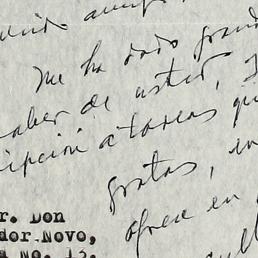 Me ha dado gran
saber de usted,
ripción a tareas qu
gratas, en
ofrece en
r. Don
dor Novo,
a No. 13.